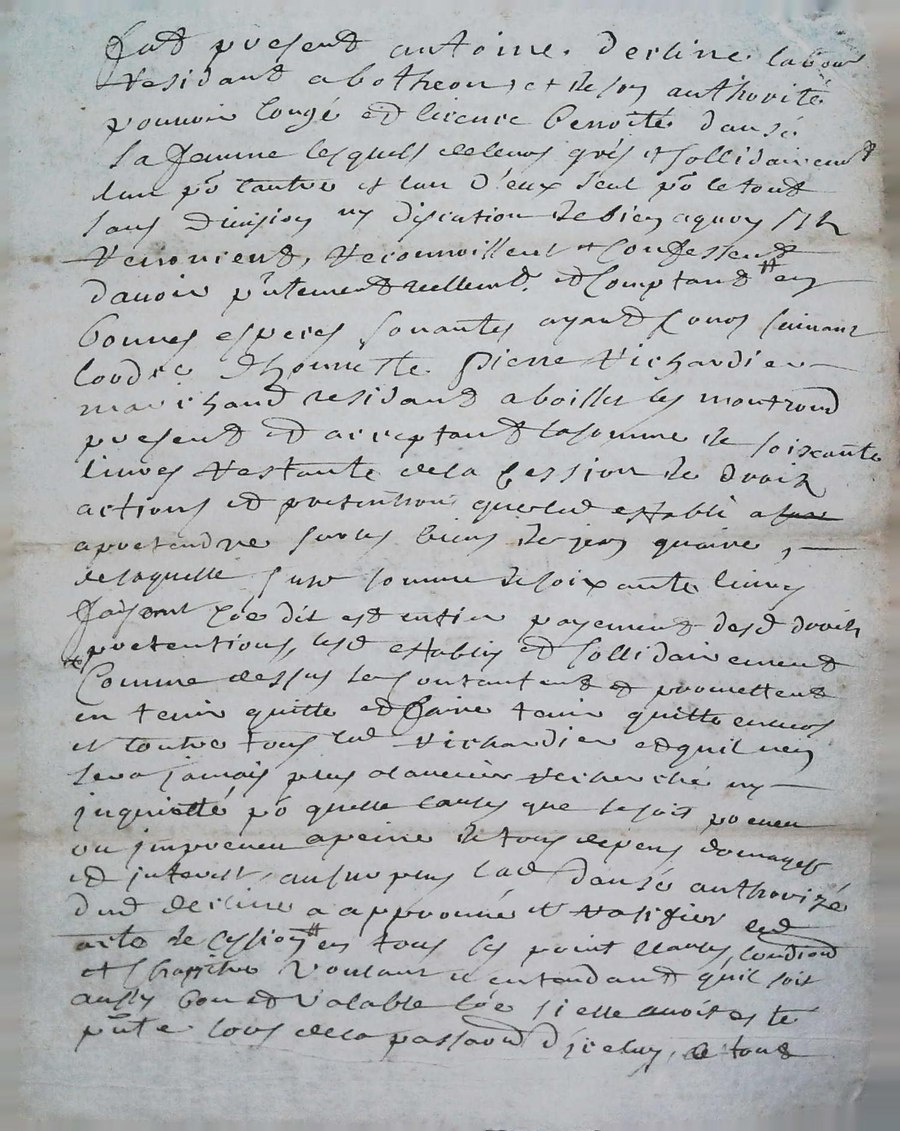 fut present antoine derline labour
residant a botheon, et de son authorité
pouvoir congé et licence benoite dansé
sa femme lesquels de leurs grés et sollidairement
lun po lautre et lun d'eux seul po le tout
sans division ny discution de biens a quoy ils
renoncent, reconnoissent et confessent
davoir pntement reellemt et comptant en
bonnes especes sonantes ayant cours suivant
lordre dhonneste pierre richardier
marchand residant a boisset les montrond
present et acceptant la somme de soixante
livres restante de la cession de droits
actions et pretentions quelud establi a
a pretendre sur les biens de jean
de laquelle susd somme de soixante livres
faisant coe dit est entier payement desd droits
pretentions, lesd establis et sollidairement
comme dessus se contentent et promettent
en tenir quitte et faire tenir quitte envers
et contre tous led richardier et quil nen
sera jamais plus a ladvenir recherché ny
inquietté po quelle cause que se soit preveu
ou impreveu a peine de tous depens domages
et interest, au surplus lad dansé authorizé
dud derline a approuvé et ratiffier led
acte de cession en tous les point clauses, condiond
et chapitre voulant et entendant quil soit
aussy bon et valable coe si elle avoit esté
pnte lors de la passaond d'iceluy, le tout